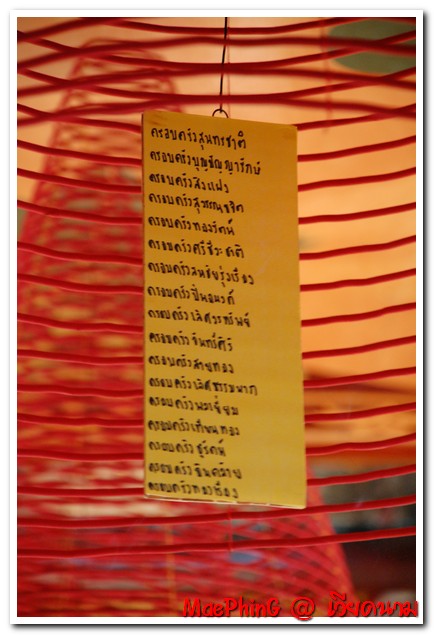 ครอบครัวสุนทรชาติ
ครอบครัวบุญธัญญารักษ์
ครอบครัว
ครอบครัวสุวรรณ
ครอบครัวทองรัตน์
ครอบครัวศรีชีวะชาติ
ครอบครัวสมชัยรุ่งเรือง
ครอบครัวปิ่นอนงค์
ครอบครัวเลิศวรทรัพย์
ครอบครัวจันทร์ศิริ
ครอบครัวสายทอง
ครอบครัวเลิศธรรมนาถ
ครอบครัว
ครอบครัวเทียนทอง
ครอบครัวชูรัตน์
ครอบครัวอินคล้าย
ครอบครัวทองเรือง
MaePhinG @ เวียดนาม